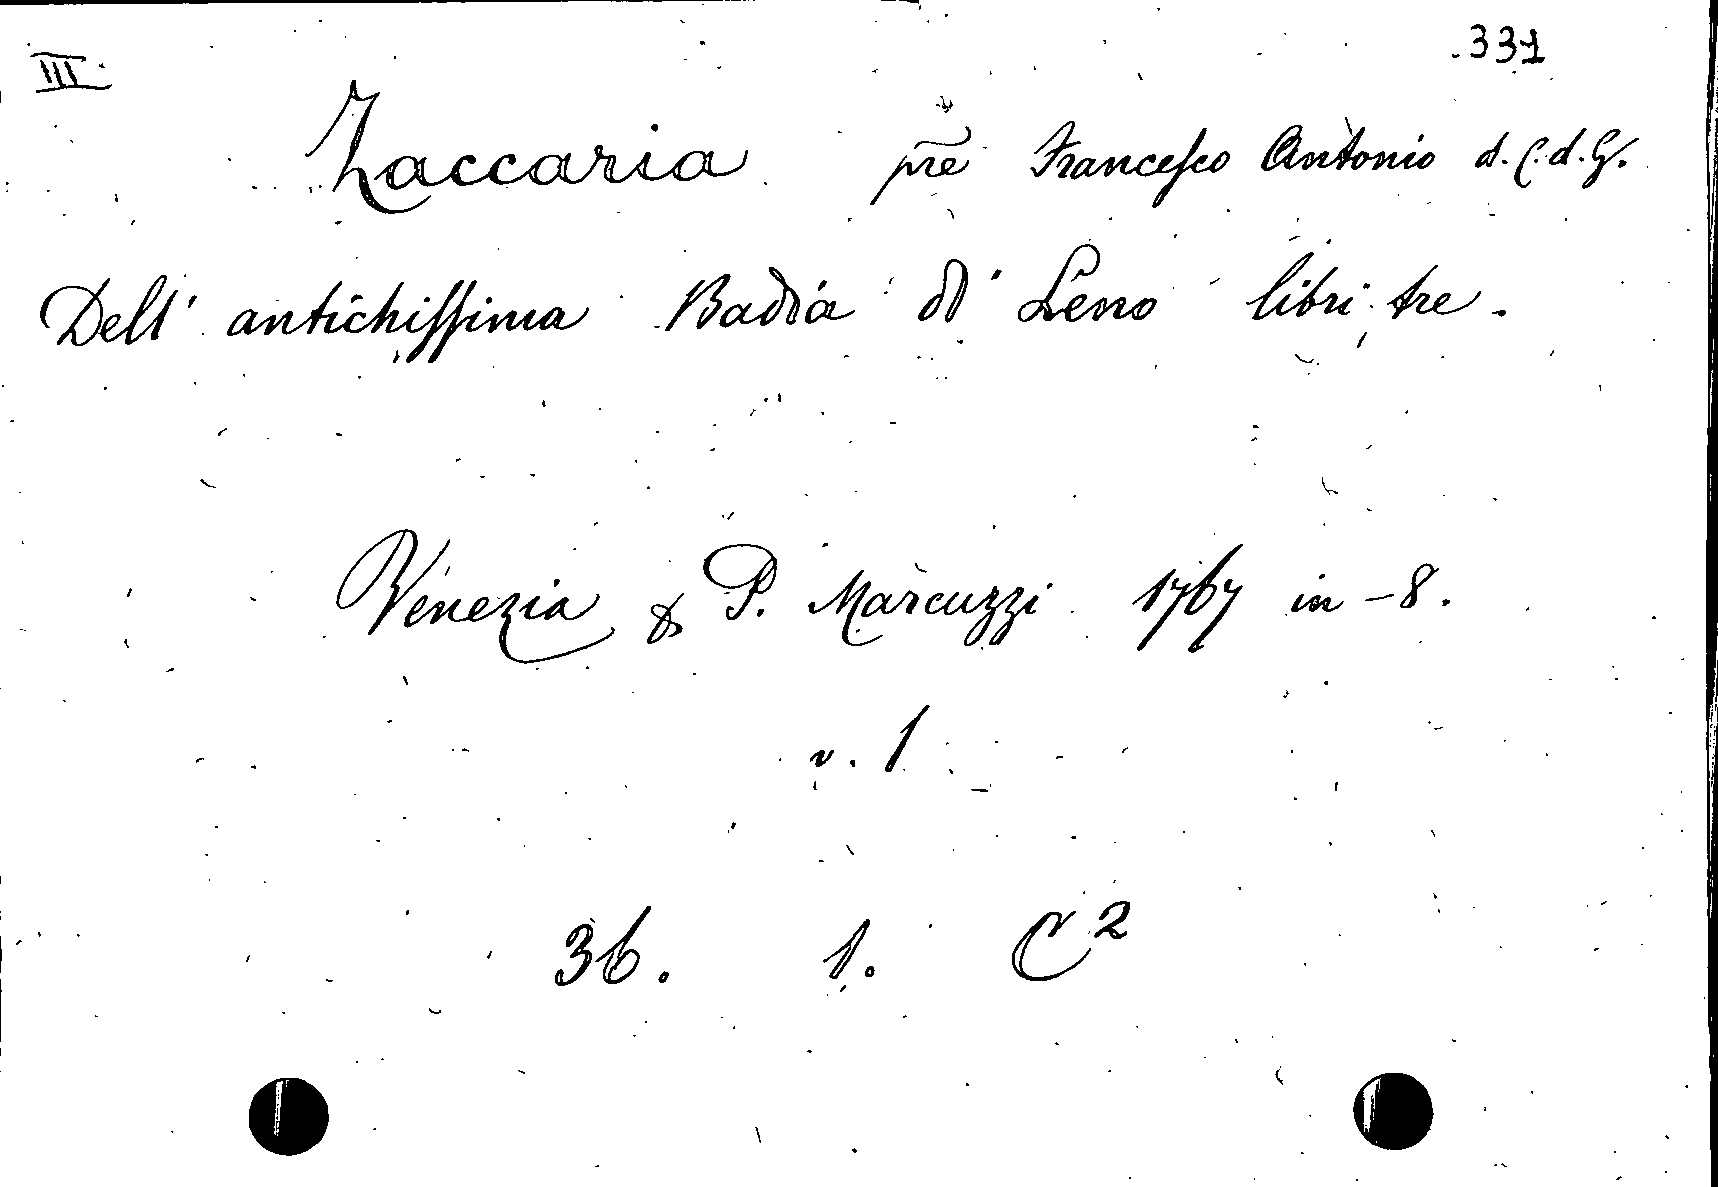 III.
331
Zaccaria prē Francesco Antonio d. C. d. G.
Dell' antichissima Badia di Leno libri tre.
Venezia & P. Marcuzzi 1767 in-8.
v. 1
36. 1. C²